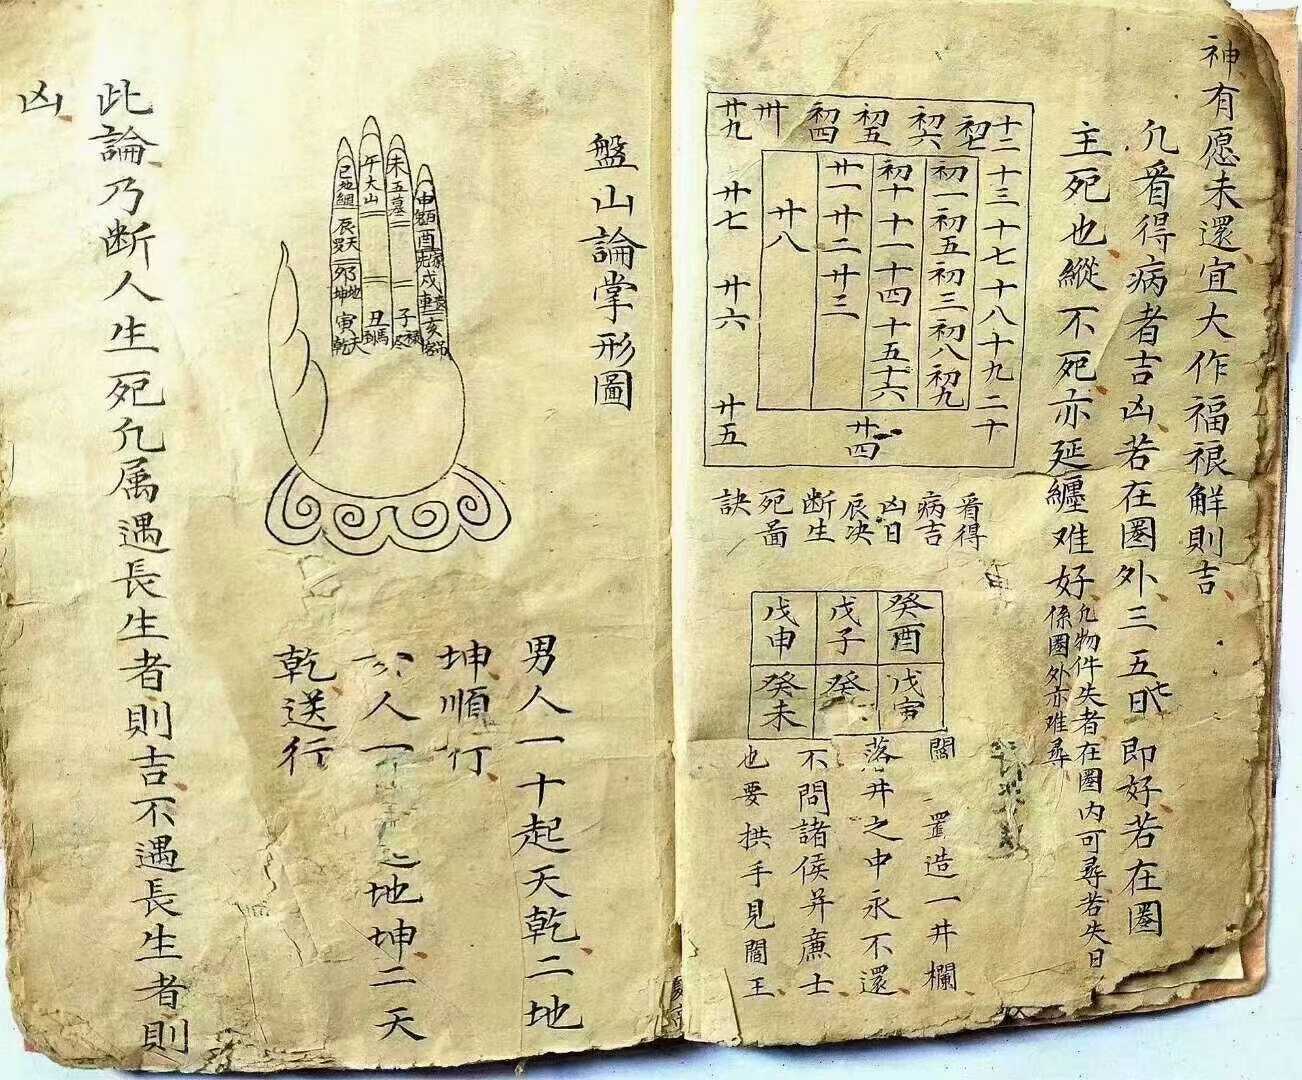 神有愿未還宜大作福禄觧則吉
凡看得病者吉凶若在圏外三五七日即好若在圏
主死也縱不死亦延纏难好
凡物件失者在圏内可尋若失日
係圏外亦难尋
十二 十三 十七 十八 十九 二十
初七
初六
初五
初四
卅
廿九
廿七
廿六
廿五
廿四
初一 初五 初三 初八 初九
初十 十一 十四 十五 十六
廿一 廿二 廿三
廿八
看得
病吉
凶日
辰决
断生
死啚
訣
癸酉
戊子
戊申
戊寅
癸
癸未
閻 置造一井欄
落井之中永不還
不問諸侯并㢘士
也要拱手見閻王
盤山論掌形圖
申
酉
戌
亥
未五墓
子
午大山
丑
巳地
辰天
卯地坤
寅天乾
男人一十起天乾二地
坤順行
人一十 地坤二天
乾送行
此論乃断人生死凡属遇長生者則吉不遇長生者則
凶